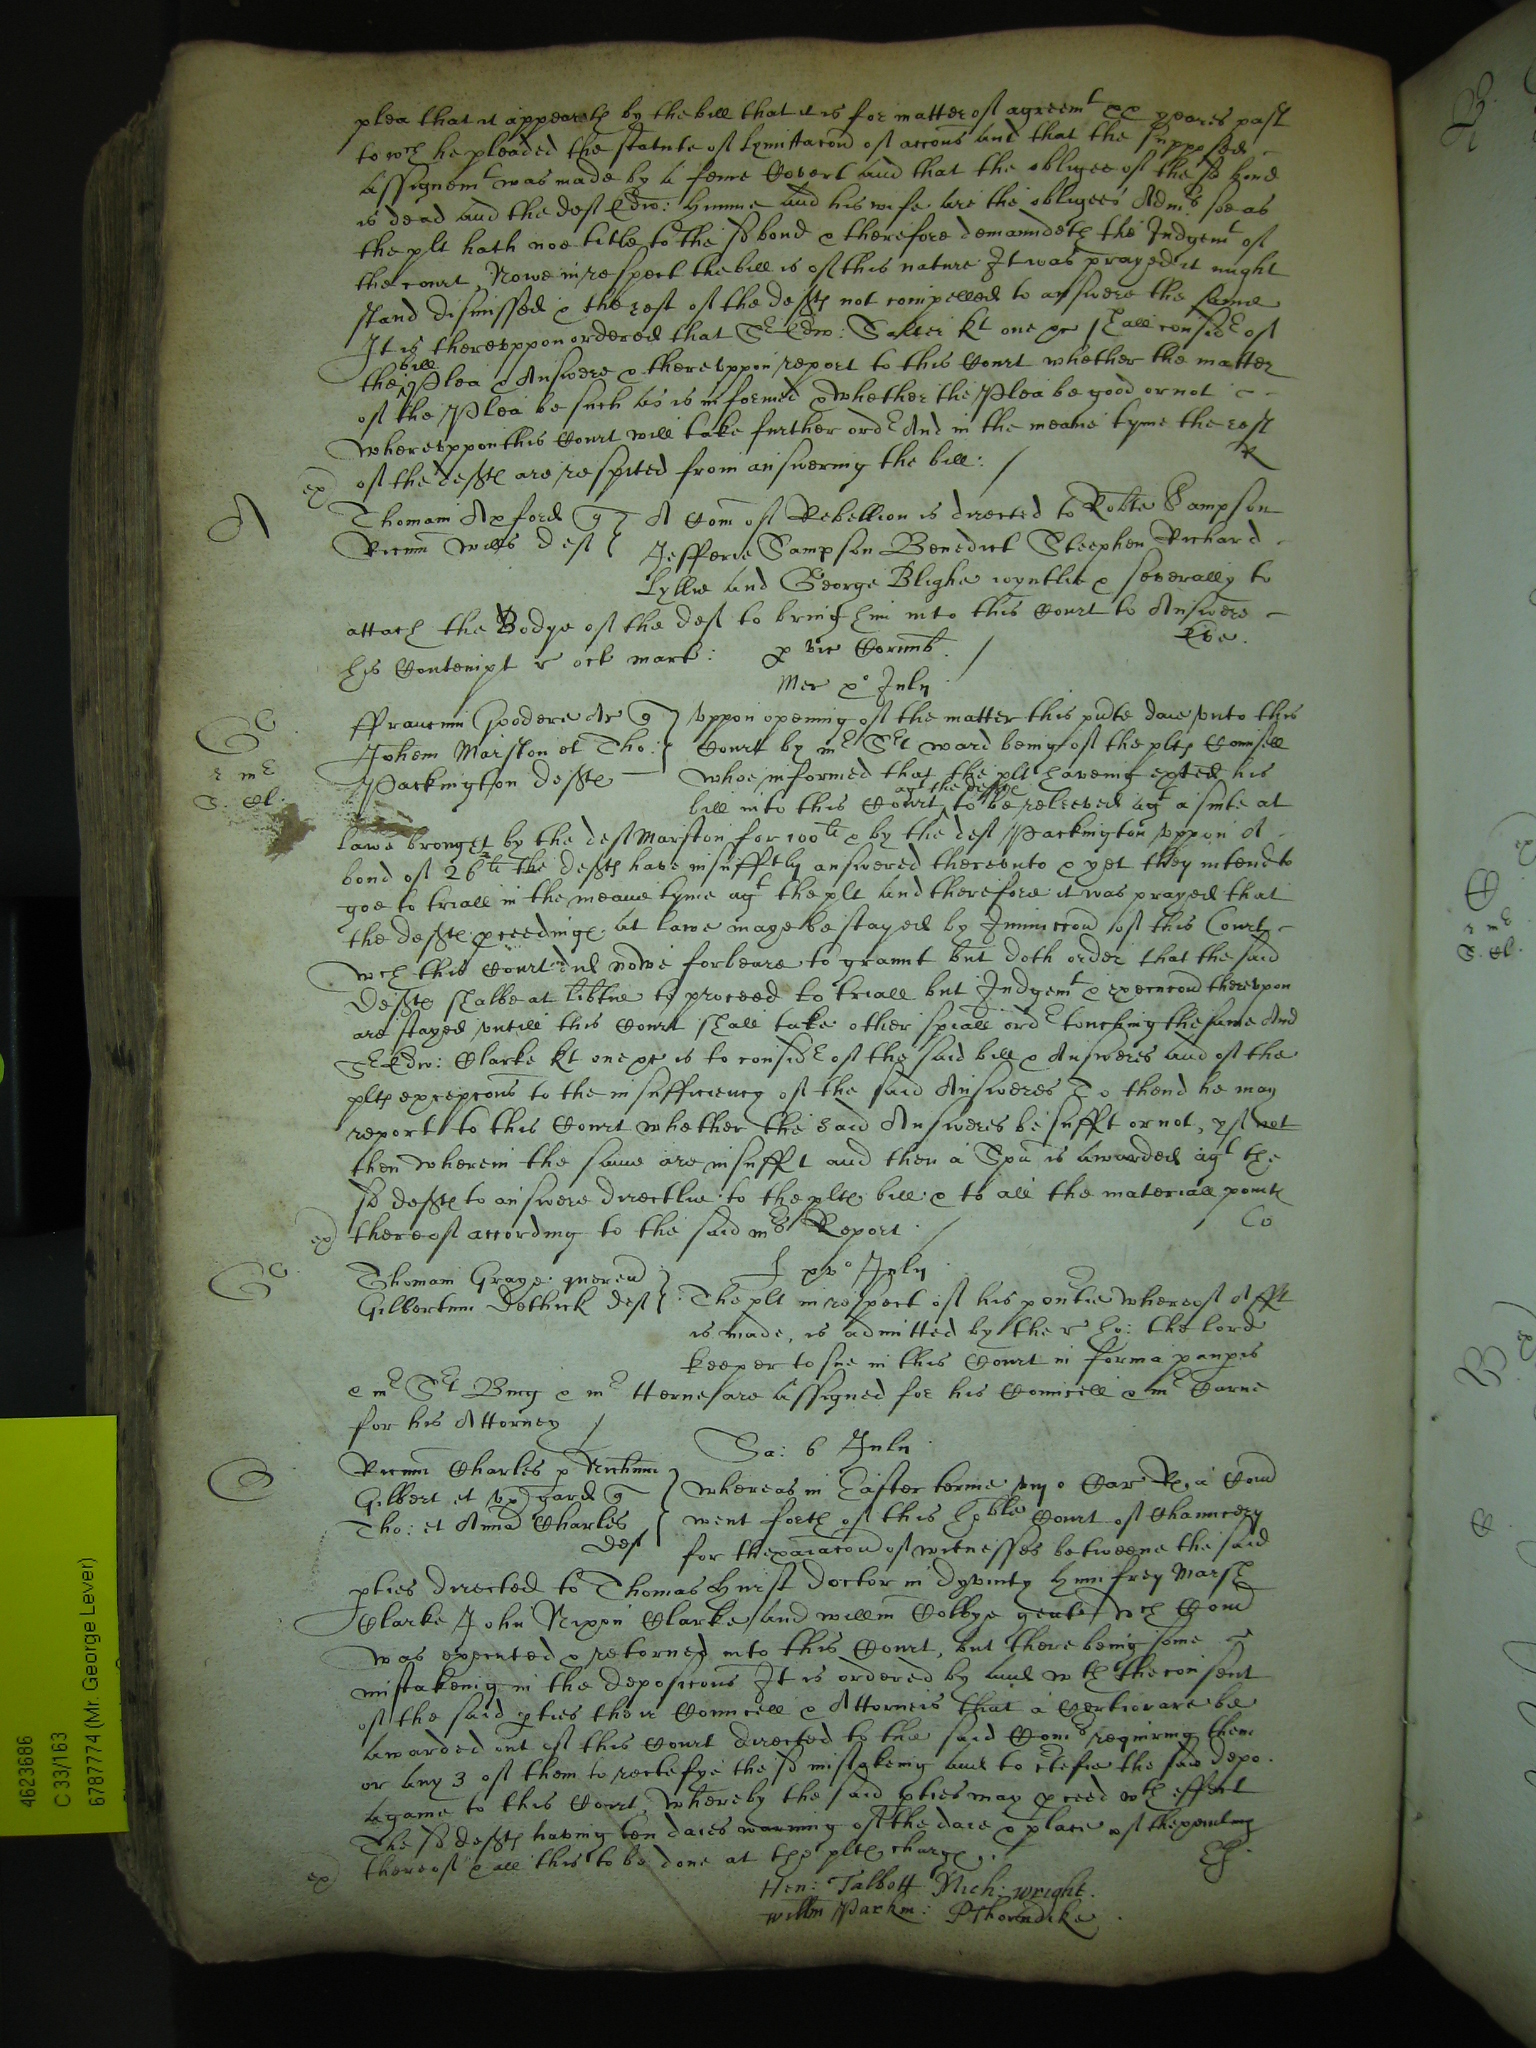 plea that it appeareth by the bill that it is for matter of agreemt xx yeares past
to wch he pleaded the statute of lymittacon of accons and that the supposed
assignemt was made by a feme Covert and that the obligee of the sd bond
is dead and the deft Edw: and his wife are the obligees Admrs soe as
the plt hath noe title to the sd bond & therefore demaundeth the Judgemt of
the court, Nowe in respect the bill is of this nature It was prayed it might
stand dismissed & the rest of the defts not compelled to answere the same
It is thereuppon ordered that Sr Edw: Salter kt one &c shall consider of
bill
the Plea & Answere & thereuppon report to this Court whether the matter
of the Plea be such as is informed & whether the Plea be good or not
whereuppon this Court will take further order And in the meane tyme the rest
of the defts are respited from answering the bill: / R
ex)
A
Thomam Axford q A Com of Rebellion is directed to Robte Sampson
Ricum Wills deft Jefferie Sampson Benedict Steephen Richard
Lyllie and George Blighe ioyntlie & severally to
attach the Bodye of the deft to bring him into this Court to Answere
his Contempt r oct mart: p vic Cornub. /
Mer xo July
ffrancum Goodere Ar q uppon opening of the matter this pnte daie unto this
Johem Marston et Tho: Court by mr Srt Ward being of the plts Counsell
Packington defts whoe informed that the plt haveing exhted his
agt the defts
bill into this Court to be releeved agt a suite at
lawe brought by the deft Marston for 100li & by the deft Packington uppon A
bond of 26li the defts have insufftly answered thereunto & yet they intend to
goe to triall in the meane tyme agt the plt and therefore it was prayed that
the defts pceedings at lawe maye be stayed by Iniunccon of this Court
wch this Court did nowe forbeare to graunt but doth order that the said
defts shalbe at libtie to proceed to triall but Judgemt & execucon thereupon
are stayed untill this Court shall take other spiall order touching the same And
Sr Edw: Clarke kt one &c is to consider of the said bill & Answeres and of the
plts excepcons to the insufficiency of the said Answeres To thend he may
report to this Court whether the said Answeres be sufft or not, yf not
then wherein the same are insufft and then a Spa is awarded agt the
sd defts to answere directlie to the plts bill & to all the materiall points
thereof according to the said mrs Report. / Co
ex)
J xvo July
Thomam Graye querend
Gilbertum Dethick deft The plt in respect of his povertie whereof Afft
is made, is admitted by the r ho: the lord
keeper to sue in this Court in forma paupis
& mr Srt Bing & mr Herne are assigned for his Councell & mr Carne
for his Attorney /
Sa: 6 July
Ricum Charles p
Gilbert et gard q whereas in Easter terme a Com
Tho: et Anna Charles went forth of this hoble Court of Chauncery
deft for thexaiacon of witnesses betweene the said
pties directed to Thomas Hurst doctor in dyvinity Humfrey Marsh
Clarke John Nixon Clarke and Willm Colbye gent wch Com
was executed & retorned into this Court, but there being some
mistakeing in the deposicons It is ordered by and wth the consent
of the said pties their Councell & Attorneis that a Certiorare be
awarded out of this Court directed to the said Comrs requiring them
or any 3 of them to rectefye the sd mistakeing and to certefie the said depo.
againe to this Court, whereby the said pties may pceed wth effect
The sd defts having ten daies warning of the daie & place of thexecuting
thereof & all this to be done at the plts charge.
ex)
Hen: Talbott Nich: Wright.
Willm Parkin: P Thorndike.
4623686
C 33/163
6787774 (Mr. George Lever)